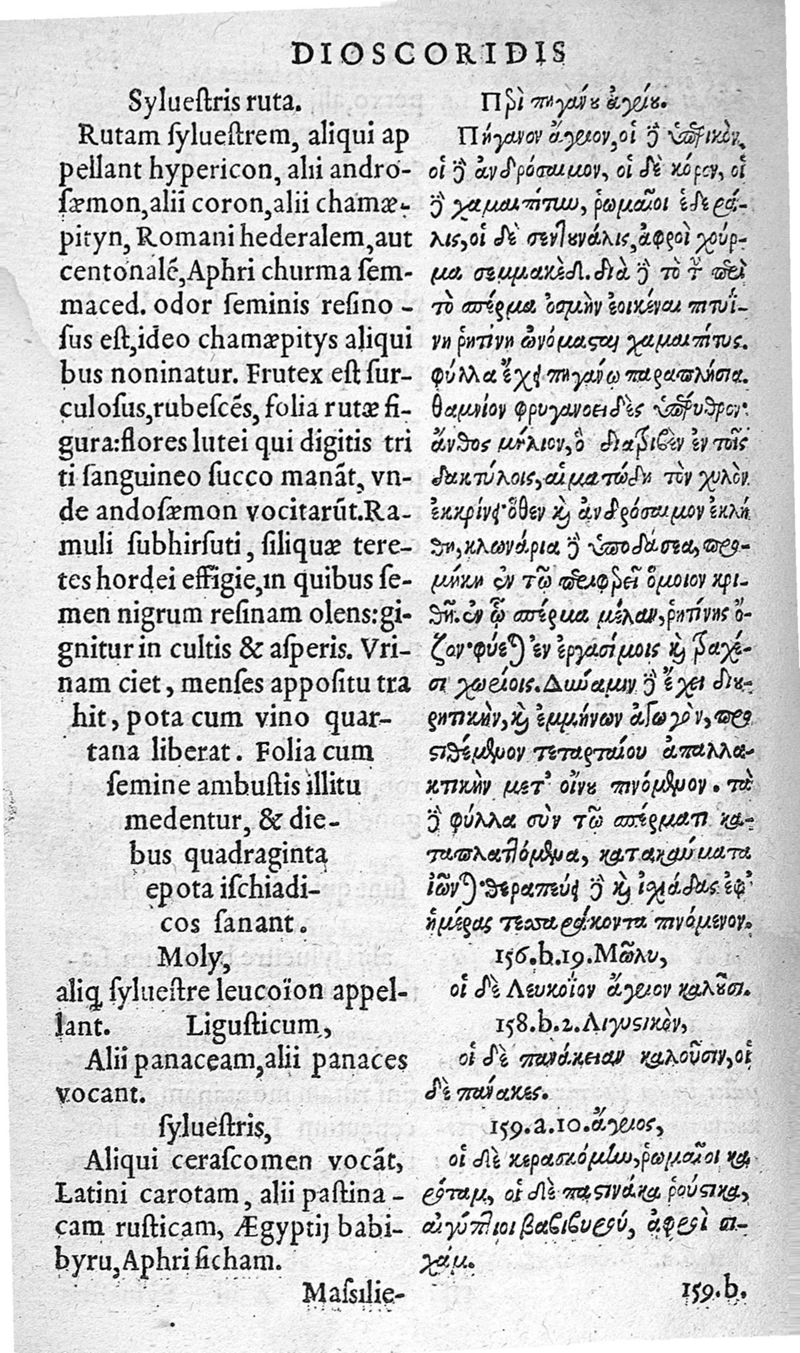 DIOSCORIDIS
Sylueſtris ruta.
Rutam ſylueſtrem, aliqui ap
pellant hypericon, alii andro-
ſæmon,alii coron,alii chamæ-
pityn, Romani hederalem,aut
centonalē,Aphri churma ſem-
maced. odor ſeminis reſino -
ſus eſt,ideo chamæpitys aliqui
bus noninatur. Frutex eſt ſur-
culoſus,rubeſcēs, folia rutæ fi-
gura:flores lutei qui digitis tri
ti ſanguineo ſucco manāt, vn-
de andoſæmon vocitarūt.Ra-
muli ſubhirſuti, ſiliquæ tere-
tes hordei effigie,in quibus ſe-
men nigrum reſinam olens:gi-
gnitur in cultis & aſperis. Vri-
nam ciet, menſes appoſitu tra
hit, pota cum vino quar-
tana liberat. Folia cum
ſemine ambuſtis illitu
medentur, & die-
bus quadraginta
epota iſchiadi-
cos ſanant.
Moly,
aliq ſylueſtre leucoïon appel-
lant. Liguſticum,
Alii panaceam,alii panaces
vocant.
ſylueſtris,
Aliqui ceraſcomen vocāt,
Latini carotam, alii paſtina -
cam ruſticam, Ægyptij babi-
byru,Aphri ſicham.
Maſsilie-
Πϵρὶ πηγάνου ἀγρίου.
Πήγανον ἄγριον,οἱ δὲ ὑπερικὸν,
οἱ δὲ ἀνδρόσαιμον, οἱ δὲ κόρον, οἱ
δὲ χαμαιπίτυν, ῥωμαῖοι ἑδερά-
λις,οἱ δὲ σεντουνάλις,ἀφροὶ χούρ-
μα σεμμακὲδ. διὰ δὲ τὸ
τὸ σπέρμα ὀσμὴν ἐοικέναι πιτυΐ-
νη ῥητίνη ὠνόμασται χαμαιπίτυς.
φύλλα ἔχει πηγάνῳ παραπλήσια.
θαμνίον φρυγανοειδὲς ὑπέρυθρον·
ἄνθος μήλιον,ὃ διαβιβὲν ἐν τοῖς
δακτύλοις,αἱματώδη τὸν χυλὸν
ἐκκρίνει·ὅθεν καὶ ἀνδρόσαιμον ἐκλή
θη,κλωνάρια δὲ ὑποδάσεα,προ-
μήκη ἐν τῷ περιφερεῖ ὅμοιον κρι-
θῇ.ἐν ᾧ σπέρμα μέλαν,ῥητίνης ὄ-
ζον·φύεται ἐν ἐργασίμοις καὶ βαχέ-
σι χωρίοις. Δύναμιν δὲ ἔχει διου-
ρητικὴν,καὶ ἐμμήνων ἀγωγὸν,προσ
τιθέμενον τεταρταίου ἀπαλλα-
κτικὴν μετ' οἴνου πινόμενον. τὰ
δὲ φύλλα σὺν τῷ σπέρματι κα-
ταπλαττόμενα, κατακαύματα
ἰῶνται·θεραπεύει δὲ καὶ ἰσχιάδας ἐφ'
ἡμέρας τεσσαράκοντα πινόμενον.
156.b.19.Μῶλυ,
οἱ δὲ Λευκοΐον ἄγριον καλοῦσι.
158.b.2.Λιγυστικὸν,
οἱ δὲ πανάκειαν καλοῦσιν,οἱ
δὲ πάνακες.
159.a.10.ἄγριος,
οἱ δὲ κερασκόμην,ῥωμαῖοι κα
ρόταμ, οἱ δὲ παστινάκα ῥούστικα,
αἰγύπτιοι βαβιβυρού, ἀφροὶ σι-
χάμ.
159.b.